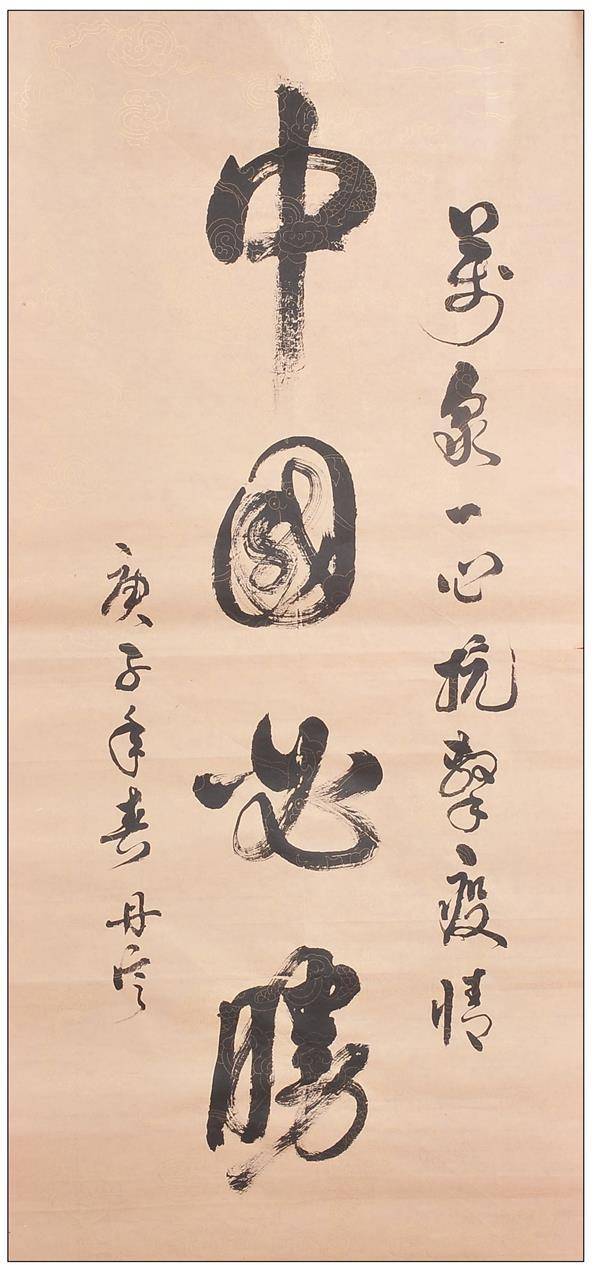 萬衆一心抗擊疫情
中國必勝
庚子年春 丹